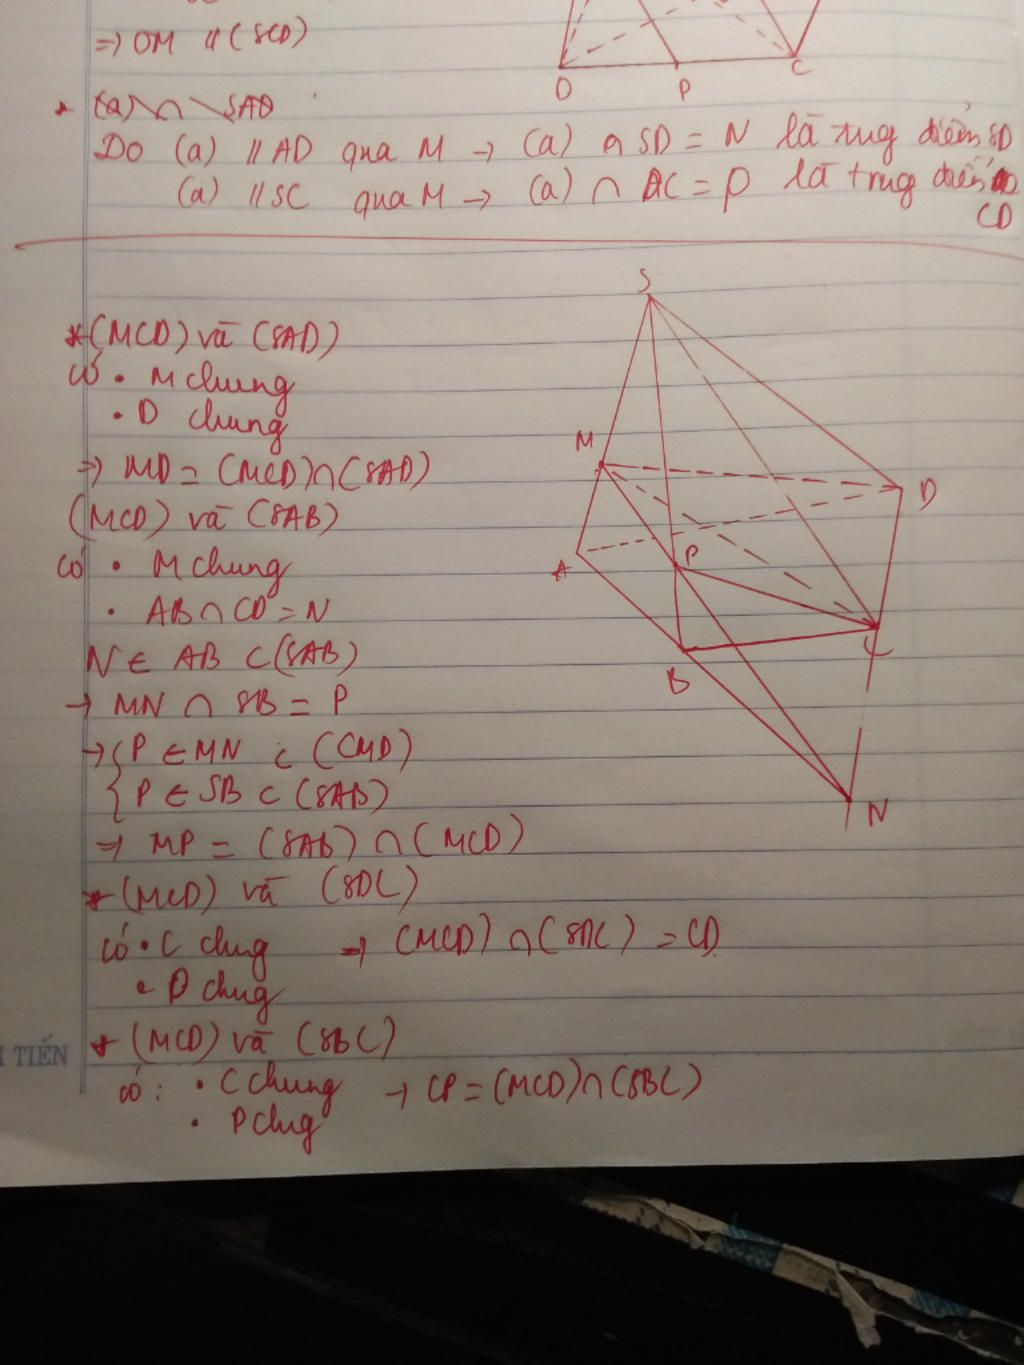 => OM // (SCD)
O P C
* (a) ∩ SAD
Do (a) // AD qua M → (a) ∩ SD = N là trug điểm SD
(a) // SC qua M → (a) ∩ AC = P là trug điểm
CD
S
* (MCD) và (SAD)
có • M chung
• D chung
=> MD = (MCD) ∩ (SAD)
M
D
(MCD) và (SAB)
có • M chung
A
P
• AB ∩ CD = N
N ∈ AB ⊂ (SAB)
C
B
→ MN ∩ SB = P
→ { P ∈ MN ⊂ (CMD)
{ P ∈ SB ⊂ (SAB)
N
=> MP = (SAB) ∩ (MCD)
* (MCD) và (SDC)
có • C chug => (MCD) ∩ (SDC) = CD
• D chug
I TIẾN
* (MCD) và (SBC)
có : • C chung → CP = (MCD) ∩ (SBC)
• P chug